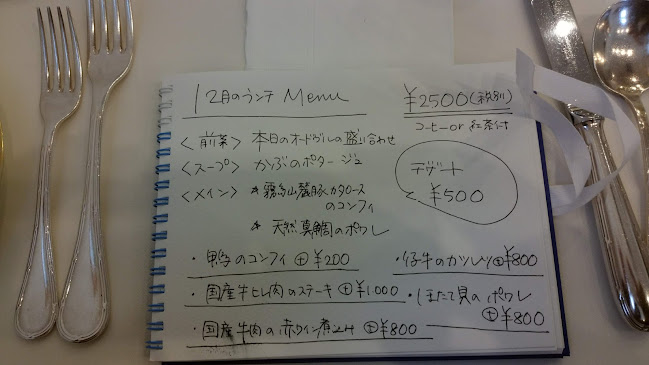 12月のランチ Menu
¥2500(税別)
コーヒー or 紅茶付
<前菜> 本日のオードヴルの盛り合わせ
<スープ> かぶのポタージュ
<メイン> * 霧島山麓豚カタロース
のコンフィ
* 天然真鯛のポワレ
デザート
¥500
・鴨のコンフィ ⊕¥200
・仔牛のカツレツ⊕¥800
・国産牛ヒレ肉のステーキ ⊕¥1.000
・ほたて貝のポワレ
⊕¥800
・国産牛肉の赤ワイン煮込み ⊕¥800